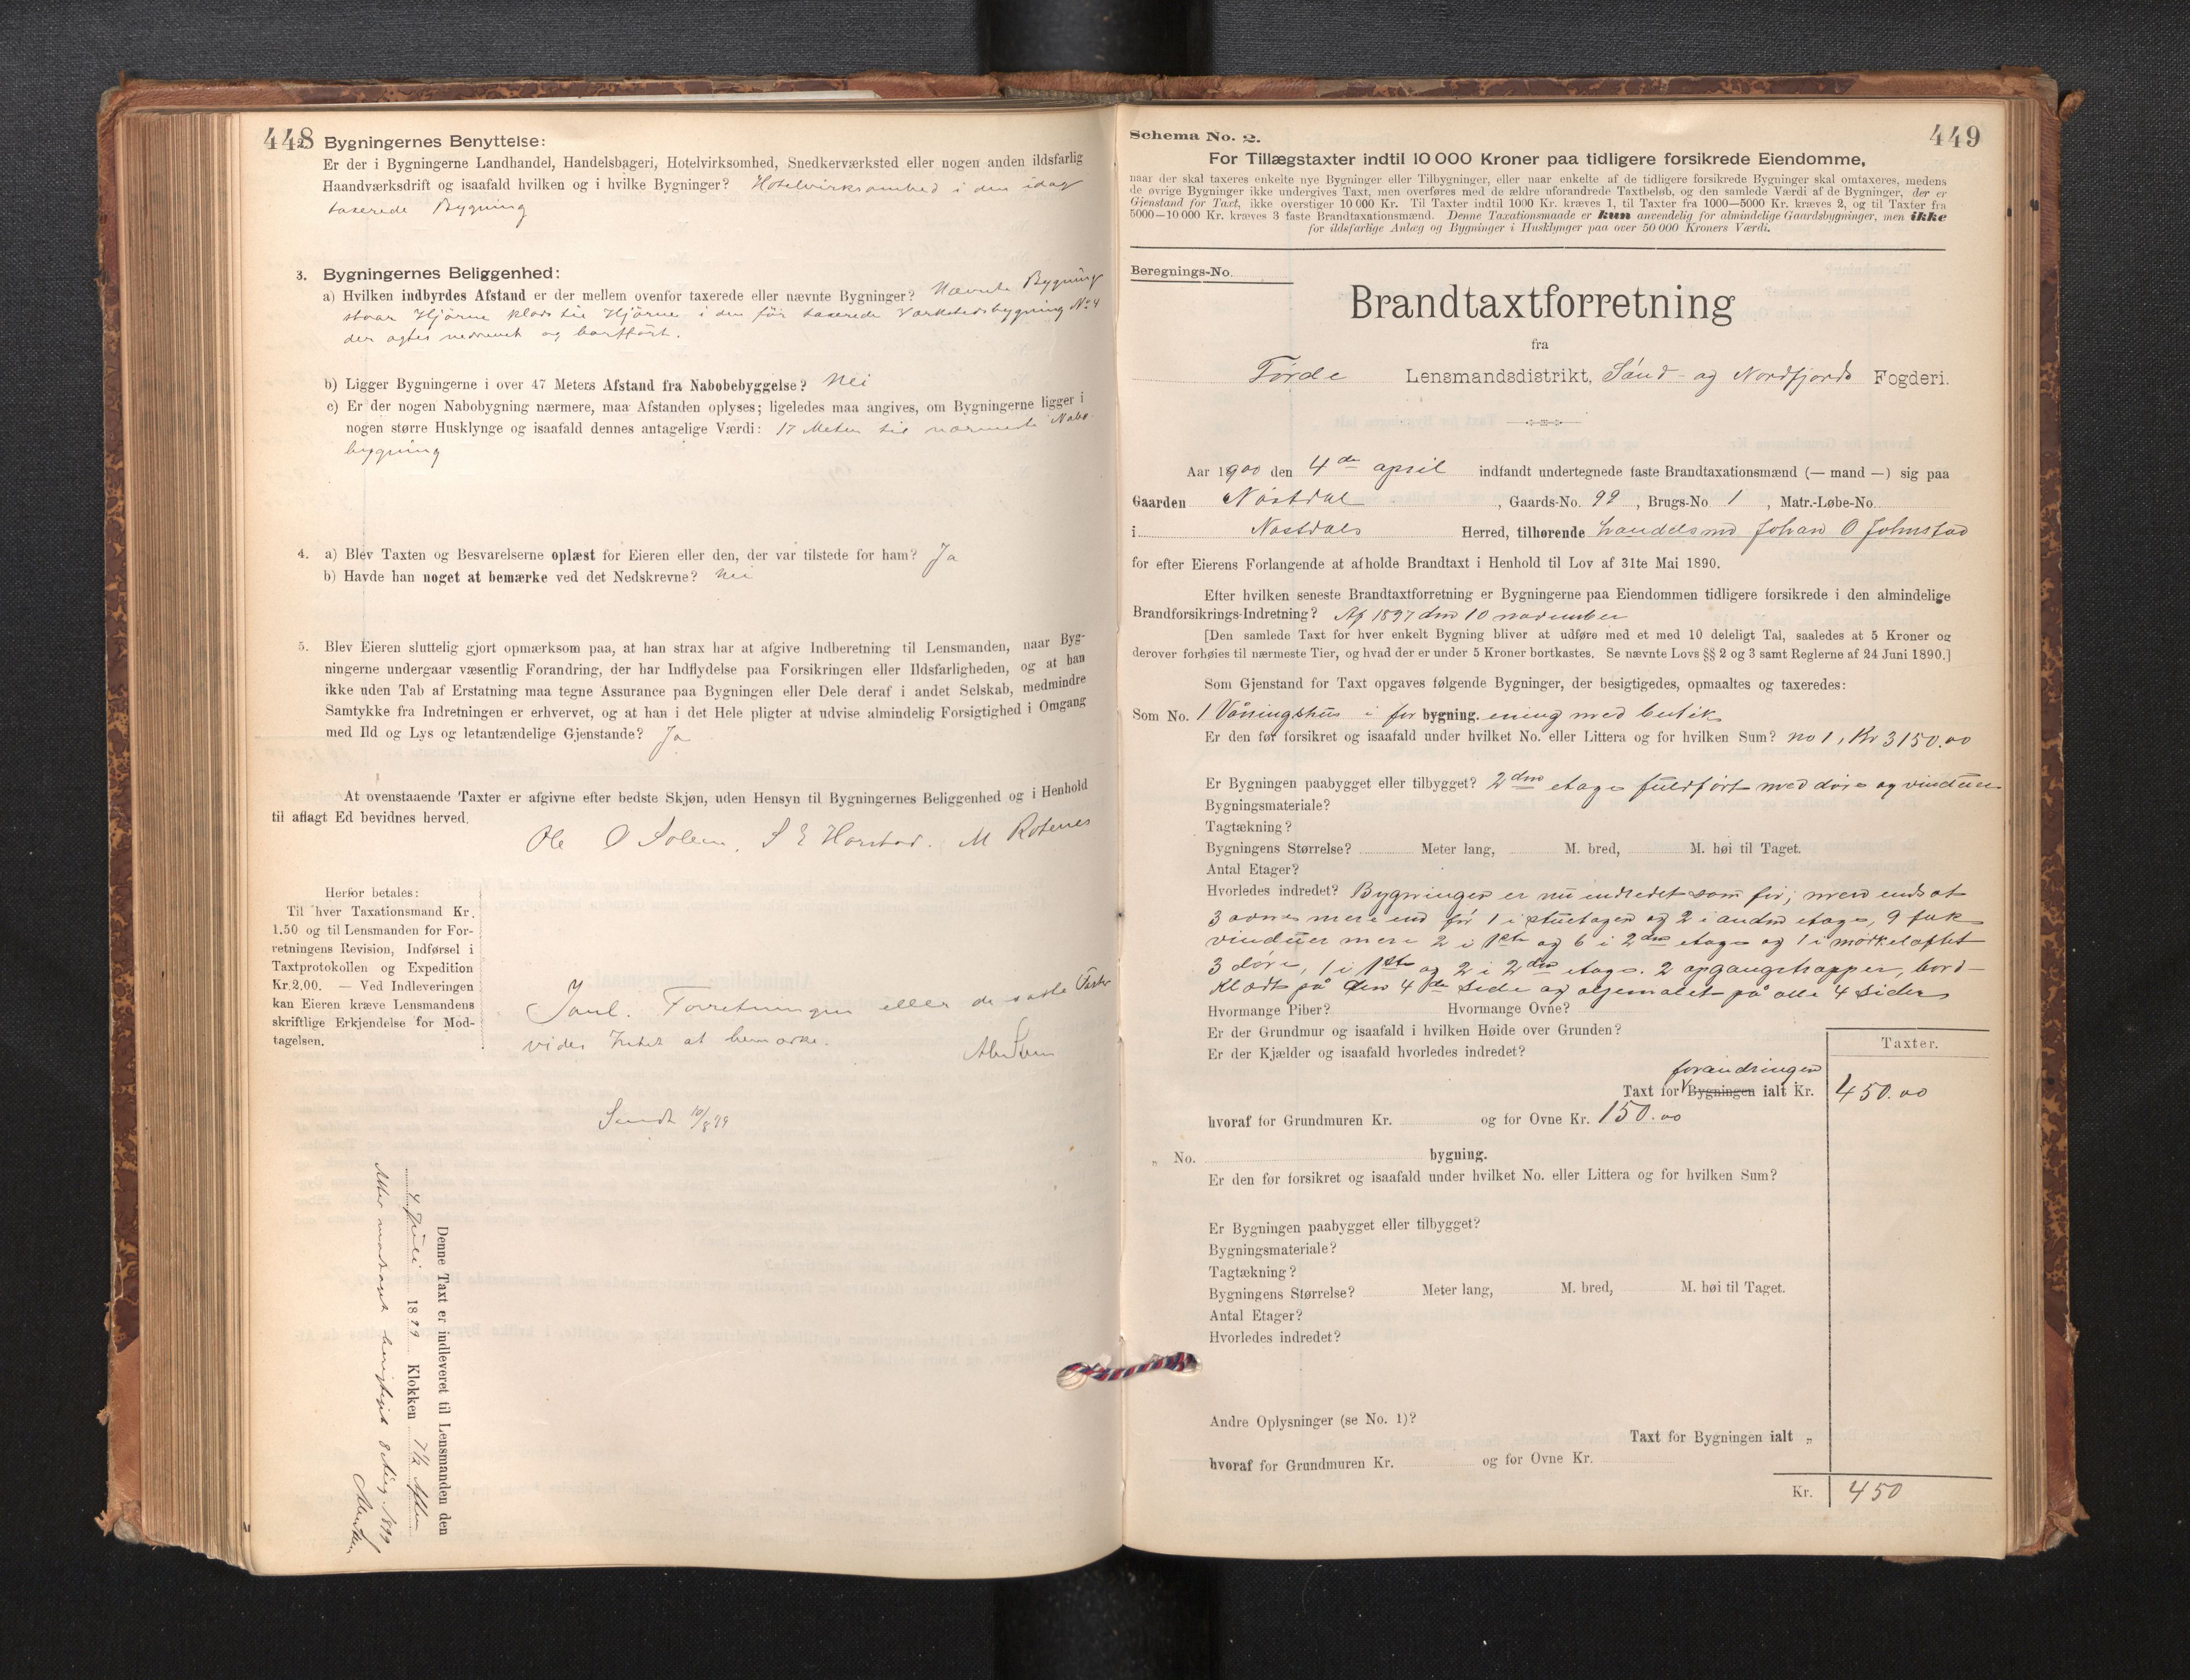 448
2. Bygningernes Benyttelse:
Er der i Bygningerne Landhandel, Handelsbageri, Hotelvirksomhed, Snedkerværksted eller nogen anden ildsfarlig
Haandværksdrift og isaafald hvilken og i hvilke Bygninger? Hotelvirksomhed i den idag
taxerede Bygning
3. Bygningernes Beliggenhed:
a) Hvilken indbyrdes Afstand er der mellem ovenfor taxerede eller nævnte Bygninger? Nævnte Bygning
staar Hjörne klods til Hjörne i den för taxerede Værkstedsbygning No 4
der agtes nedrevet og bortfört.
b) Ligger Bygningerne i over 47 Meters Afstand fra Nabobebyggelse? Nei
c) Er der nogen Nabobygning nærmere, maa Afstanden oplyses; ligeledes maa angives, om Bygningerne ligger i
nogen større Husklynge og isaafald dennes antagelige Værdi: 17 Meter til nærmeste Nabo
bygning
4. a) Blev Taxten og Besvarelserne oplæst for Eieren eller den, der var tilstede for ham? Ja
b) Havde han noget at bemærke ved det Nedskrevne? Nei
5. Blev Eieren sluttelig gjort opmærksom paa, at han strax har at afgive Indberetning til Lensmanden, naar Byg-
ningerne undergaar væsentlig Forandring, der har Indflydelse paa Forsikringen eller Ildsfarligheden, og at han
ikke uden Tab af Erstatning maa tegne Assurance paa Bygningen eller Dele deraf i andet Selskab, medmindre
Samtykke fra Indretningen er erhvervet, og at han i det Hele pligter at udvise almindelig Forsigtighed i Omgang
med Ild og Lys og letantændelige Gjenstande? Ja
At ovenstaaende Taxter er afgivne efter bedste Skjøn, uden Hensyn til Bygningernes Beliggenhed og i Henhold
til aflagt Ed bevidnes herved.
Ole O Solem. S E Horstad. M Rotenes
Herfor betales:
Til hver Taxationsmand Kr.
1.50 og til Lensmanden for For-
retningens Revision, Indførsel i
Taxtprotokollen og Expedition
Kr. 2.00. — Ved Indleveringen
kan Eieren kræve Lensmandens
skriftlige Erkjendelse for Mod-
tagelsen.
Forretningen eller de satte Taxter
vides Intet at bemærke.
Sendt 10/8 99
Denne Taxt er indleveret til Lensmanden den
4 Juli 1899 Klokken 7½
1899
449
Schema No. 2.
For Tillægstaxter indtil 10 000 Kroner paa tidligere forsikrede Eiendomme,
naar der skal taxeres enkelte nye Bygninger eller Tilbygninger, eller naar enkelte af de tidligere forsikrede Bygninger skal omtaxeres, medens
de øvrige Bygninger ikke undergives Taxt, men overføres med de ældre uforandrede Taxtbeløb, og den samlede Værdi af de Bygninger, der er
Gjenstand for Taxt, ikke overstiger 10 000 Kr. Til Taxter indtil 1000 Kr. kræves 1, til Taxter fra 1000—5000 Kr. kræves 2, og til Taxter fra
5000—10 000 Kr. kræves 3 faste Brandtaxationsmænd. Denne Taxationsmaade er kun anvendelig for almindelige Gaardsbygninger, men ikke
for ildsfarlige Anlæg og Bygninger i Husklynger paa over 50 000 Kroners Værdi.
Beregnings-No.
Brandtaxtforretning
fra
Förde Lensmandsdistrikt, Sönd- og Nordfjords Fogderi.
Aar 1900 den 4de april indfandt undertegnede faste Brandtaxationsmænd (— mand —) sig paa
Gaarden Nöstdal, Gaards-No. 99, Brugs-No. 1, Matr.-Løbe-No.
i Nöstdals Herred, tilhørende handelsmd Johan O Jolmstad
for efter Eierens Forlangende at afholde Brandtaxt i Henhold til Lov af 31te Mai 1890.
Efter hvilken seneste Brandtaxtforretning er Bygningerne paa Eiendommen tidligere forsikrede i den almindelige
Brandforsikrings-Indretning? Af 1897 den 10 november
[Den samlede Taxt for hver enkelt Bygning bliver at udføre med et med 10 deleligt Tal, saaledes at 5 Kroner og
derover forhøies til nærmeste Tier, og hvad der er under 5 Kroner bortkastes. Se nævnte Lovs §§ 2 og 3 samt Reglerne af 24 Juni 1890.]
Som Gjenstand for Taxt opgaves følgende Bygninger, der besigtigedes, opmaaltes og taxeredes:
Som No. 1 Våningshus i for bygning. ening med butik
Er den før forsikret og isaafald under hvilket No. eller Littera og for hvilken Sum? no 1, Kr 3150.00
Er Bygningen paabygget eller tilbygget? 2den etage fuldfört med döre og vinduer
Bygningsmateriale?
Tagtækning?
Bygningens Størrelse? Meter lang, M. bred, M. høi til Taget.
Antal Etager?
Hvorledes indredet? Bygningen er nu indredet som för; men indsat
3 ovne mere end för 1 i stuetagen og 2 i anden etage, 9 fak
vinduer mere 2 i 1ste og 6 i 2den etage og 1 i mörkeloftet
3 döre, 1 i 1ste og 2 i 2den etage. 2 opgangstrapper, bord-
klædt på den 4de side og oljemalet på alle 4 sider
Hvormange Piber? Hvormange Ovne?
Er der Grundmur og isaafald i hvilken Høide over Grunden?
Er der Kjælder og isaafald hvorledes indredet?
Taxter.
forandringen
Taxt for Bygningen ialt Kr. 450.00
hvoraf for Grundmuren Kr. og for Ovne Kr. 150.00
„ No. bygning.
Er den før forsikret og isaafald under hvilket No. eller Littera og for hvilken Sum?
Er Bygningen paabygget eller tilbygget?
Bygningsmateriale?
Tagtækning?
Bygningens Størrelse? Meter lang, M. bred, M. høi til Taget.
Antal Etager?
Hvorledes indredet?
Andre Oplysninger (se No. 1)?
Taxt for Bygningen ialt „
hvoraf for Grundmuren Kr. og for Ovne Kr.
Kr. 450